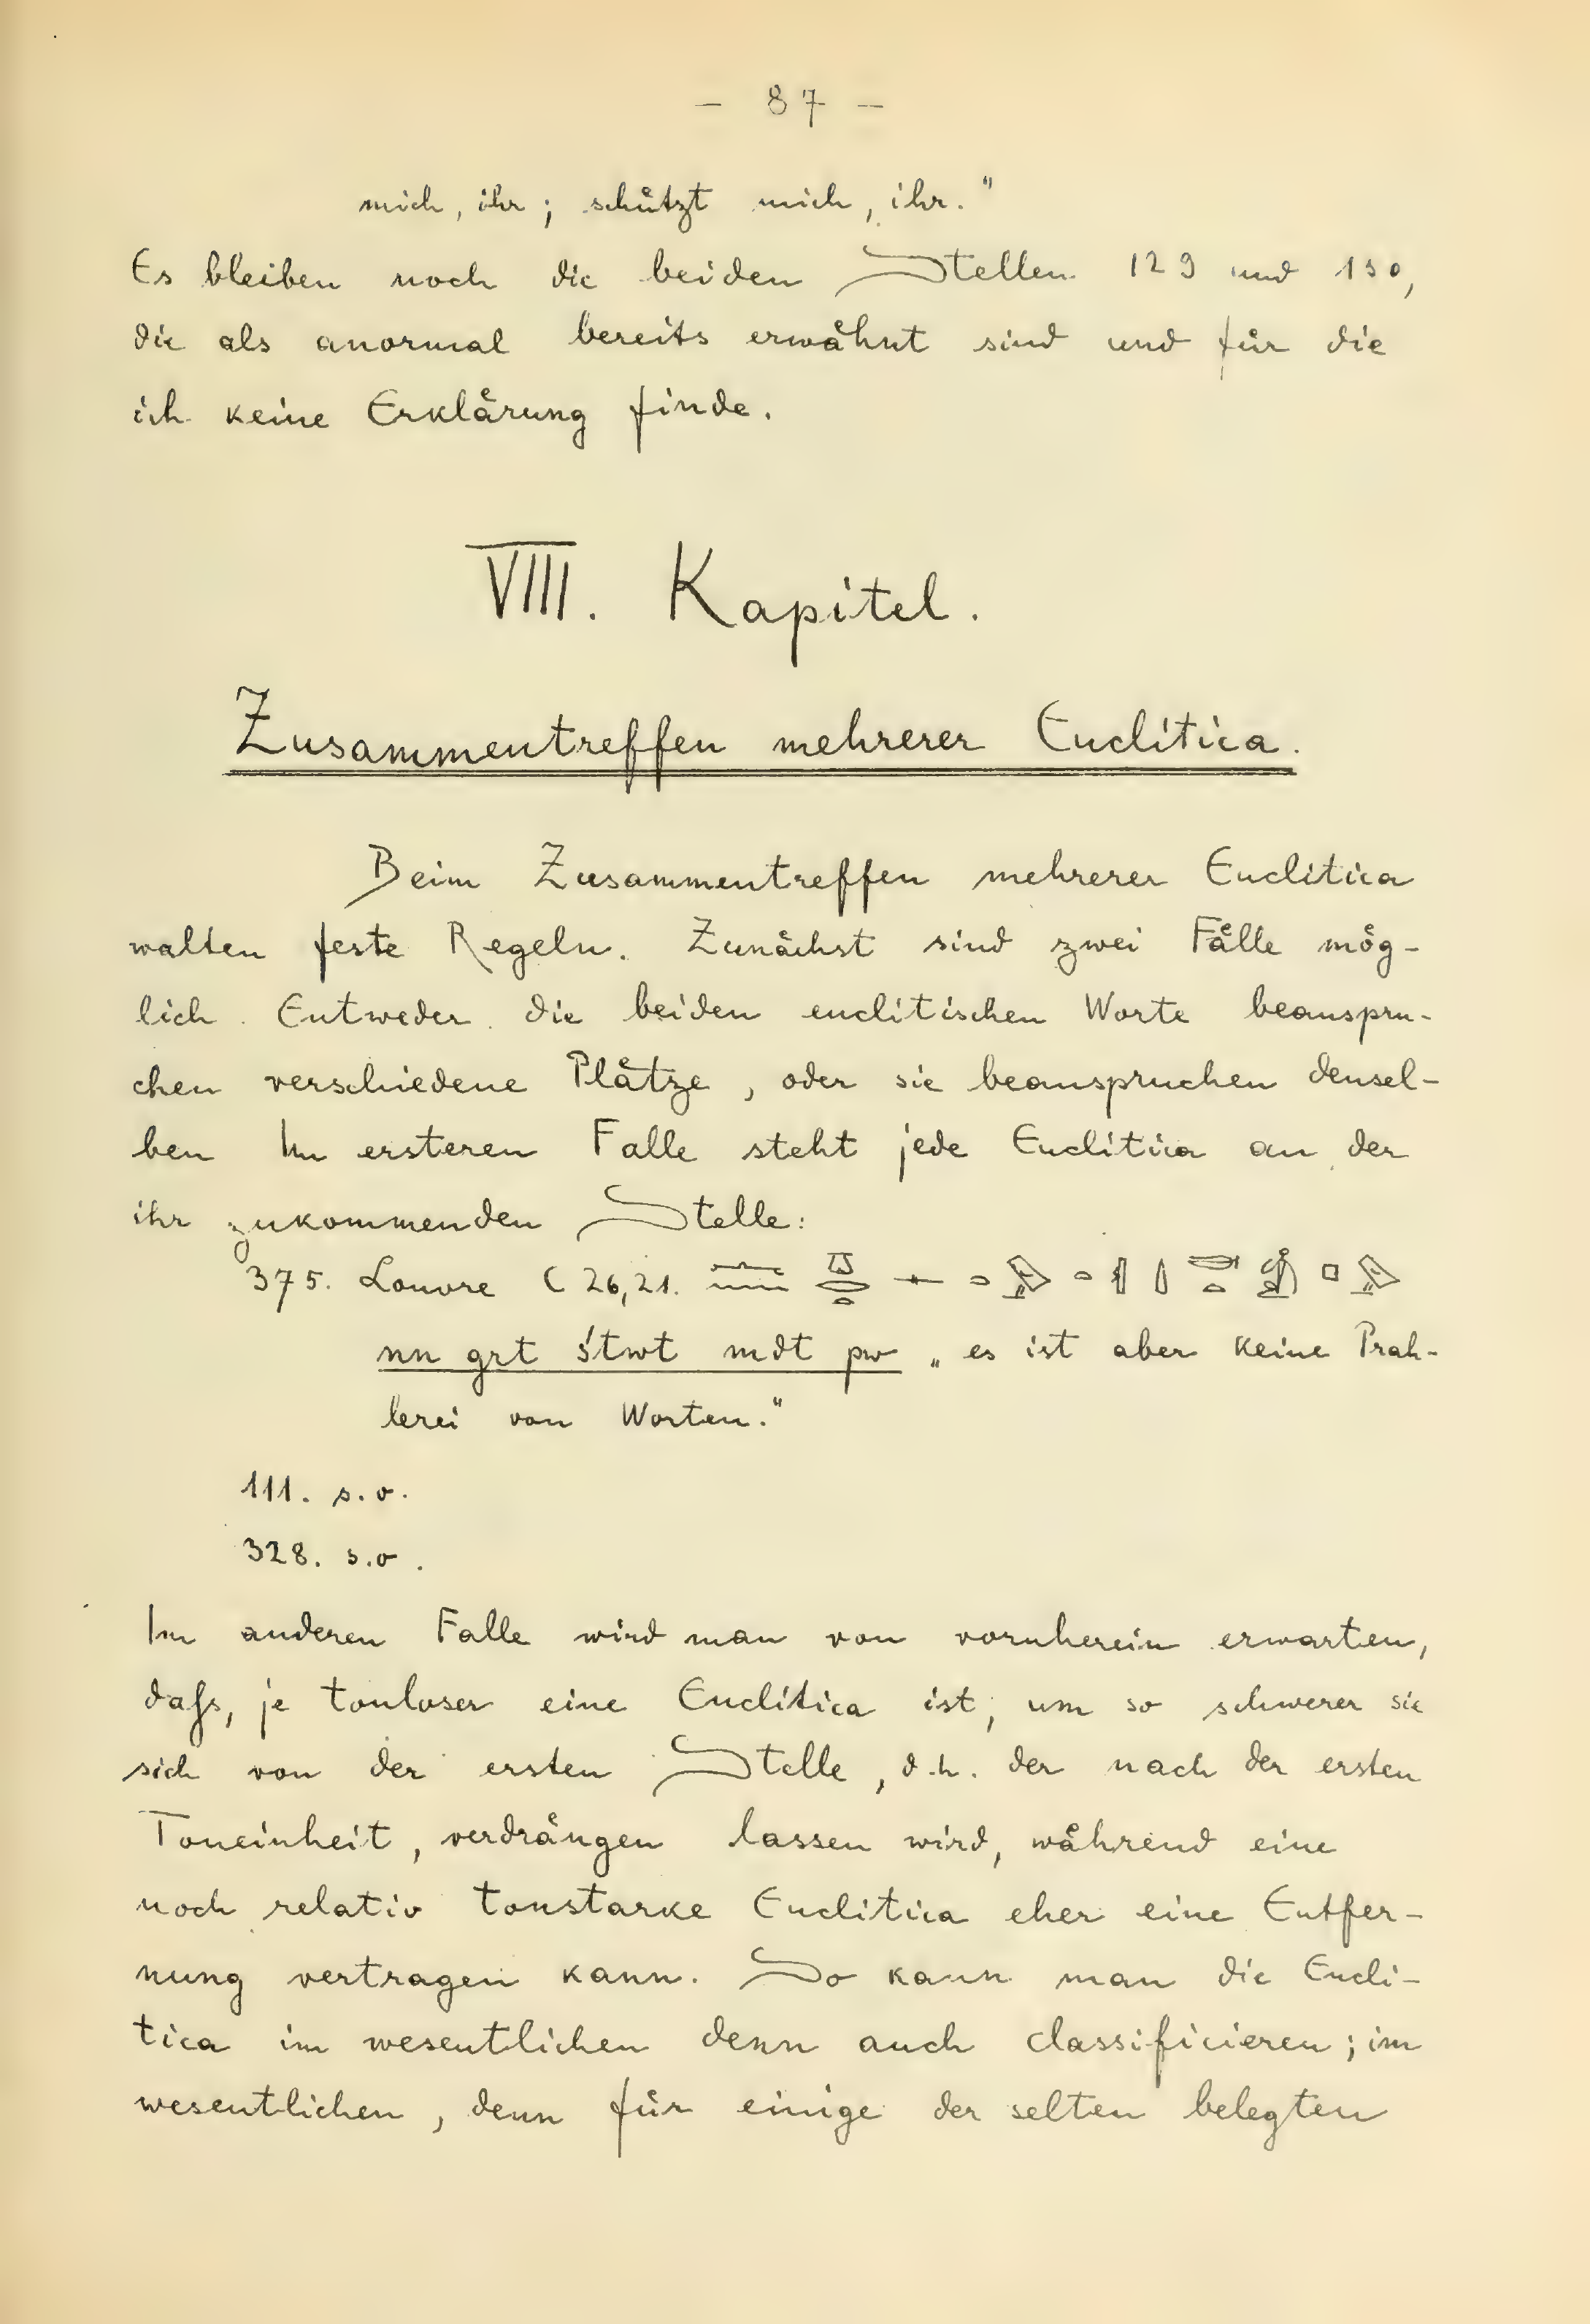 – 87 –
mich, ihr; schützt mich, ihr."
Es bleiben noch die beiden Stellen 129 und 130,
die als anormal bereits erwähnt sind und für die
ich keine Erklärung finde.
VIII. Kapitel.
Zusammentreffen mehrerer Enclitica.
Beim Zusammentreffen mehrerer Enclitica
walten feste Regeln. Zunächst sind zwei Fälle mög-
lich. Entweder die beiden enclitischen Worte beanspru-
chen verschiedene Plätze, oder sie beanspruchen densel-
ben Im ersteren Falle steht jede Enclitica an der
ihr zukommenden Stelle:
375. Louvre C 26,21.
nn grt śtwt mdt pw „es ist aber keine Prah-
lerei von Worten."
111. s.o.
328. s.o.
Im anderen Falle wird man von vornherein erwarten,
dafs, je tonloser eine Enclitica ist, um so schwerer sie
sich von der ersten Stelle, d.h. der nach der ersten
Toneinheit, verdrängen lassen wird, während eine
noch relativ tonstarke Enclitica eher eine Entfer-
nung vertragen kann. So kann man die Encli-
tica im wesentlichen denn auch classificieren; im
wesentlichen, denn für einige der selten belegten